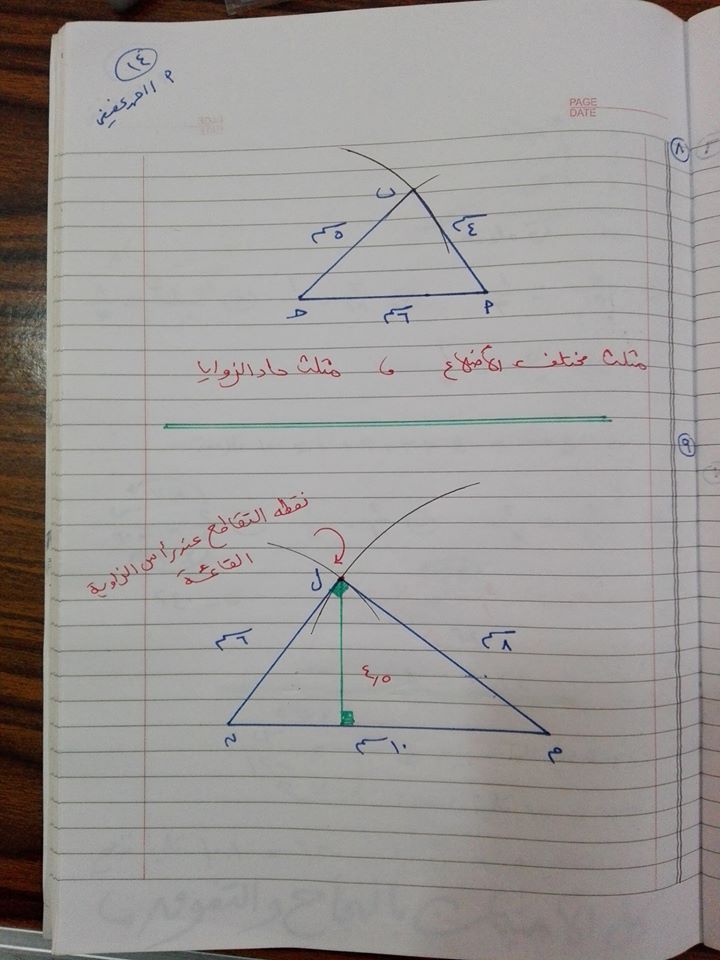 ١٤
م / احمد عفيفي
PAGE
DATE
٨
ب
٥سم
٤سم
ح
٦سم
م
مثلث مختلف الأضلاع ، مثلث حاد الزوايا
٩
نقطه التقاطع عند رأس الزاوية
القائمة
ل
٦سم
٨سم
٤,٥
ن
١٠سم
م